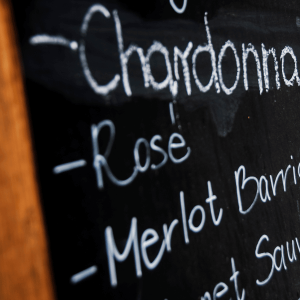 - Chardonna
- Rosé
- Merlot Barri
- net Sau